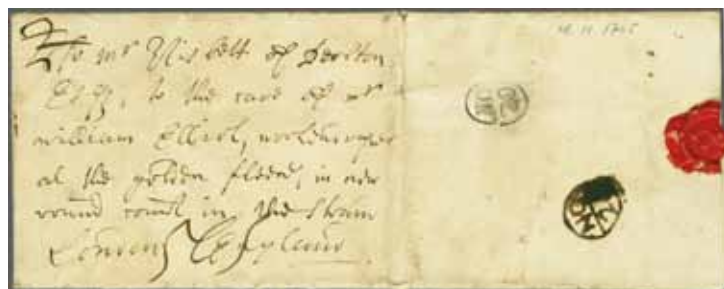 To mr Nisbett of Derlton
Esqr, to the care of mr
william Elliot, woolendraper
at the golden fleece, in new
round court in the Strain
London England